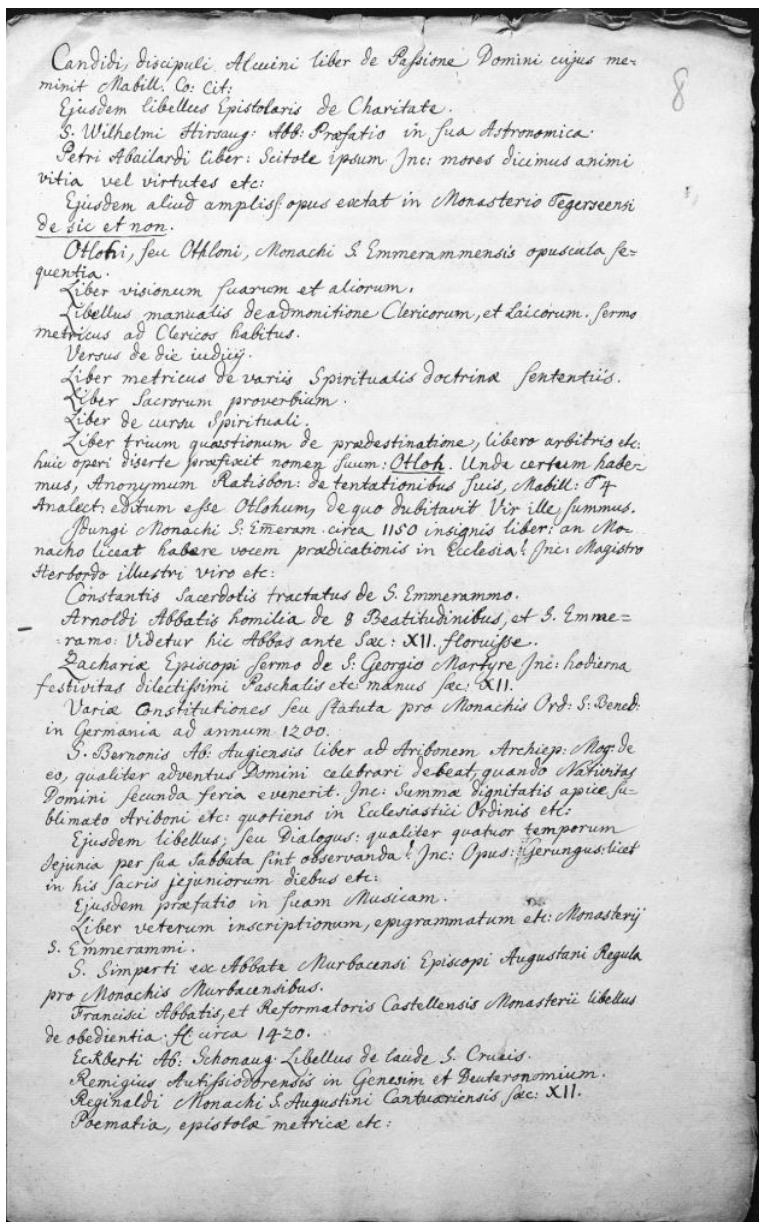 8
Candidi, discipuli Alcuini liber de Passione Domini cujus me-
minit Mabill. Co: cit:
Ejusdem libellus Epistolaris de Charitate.
S. Wilhelmi Hirsaug: Abb: Præfatio in sua Astronomica.
Petri Abailardi liber: Scitote ipsum Inc: mores dicimus animi
vitia vel virtutes etc:
Ejusdem aliud ampliss: opus extat in Monasterio Tegerseensi
de sic et non.
Otlohi, seu Othloni, Monachi S. Emmerammensis opuscula se-
quentia.
Liber visionum suarum et aliorum.
Libellus manualis de admonitione Clericorum, et Laicorum. sermo
metricus ad Clericos habitus.
Versus de die iudicij.
Liber metricus de variis Spiritualis doctrinæ sententiis.
Liber Sacrorum proverbium.
Liber de cursu Spirituali.
Liber trium quæstionum de prædestinatione, libero arbitrio etc:
huic operi diserte præfixit nomen suum: Otloh. Unde certum habe-
mus, Anonymum Ratisbon: de tentationibus suis, Mabill: T 4
Analect: editum esse Otlohum, de quo dubitavit Vir ille summus.
Monachi S: Em̄eram. circa 1150 insignis liber: an Mo-
nacho liceat habere vocem prædicationis in Ecclesia! Inc: Magistro
Herbordo illustri viro etc:
Constantis Sacerdotis tractatus de S. Emmerammo.
Arnoldi Abbatis homilia de 8 Beatitudinibus, et S. Emme=
ramo: Videtur hic Abbas ante Sæc: XII. floruisse.
Zachariæ Episcopi sermo de S: Georgio Martyre Inc: hodierna
festivitas dilectissimi Paschalis etc: manus sæc: XII.
Variæ Constitutiones seu statuta pro Monachis Ord: S: Bened:
in Germania ad annum 1200.
S. Bernonis Ab: Augiensis liber ad Aribonem Archiep: Mog: de
eo, qualiter adventus Domini celebrari debeat, quando Nativitas
Domini secunda feria evenerit. Inc: Summæ dignitatis apice su-
blimato Ariboni etc: quotiens in Ecclesiastici Ordinis etc:
Ejusdem libellus, seu Dialogus: qualiter quatuor temporum
Jejunia per sua Sabbata sint observanda! Inc: Opus: Gerungus: licet
in his sacris jejuniorum diebus etc:
Ejusdem præfatio in suam Musicam.
Liber veterum inscriptionum, epigrammatum etc: Monasterij
S. Emmerammi.
S. Simperti ex Abbate Murbacensi Episcopi Augustani Regula
pro Monachis Murbacensibus.
Francisci Abbatis, et Reformatoris Castellensis Monasterii libellus
de obedientia. fl: circa 1420.
Eckberti Ab: Schonaug: Libellus de laude S. Crucis.
Remigius Autissiodorensis in Genesim et Deuteronomium.
Reginaldi Monachi S. Augustini Cantuariensis sæc: XII.
Poematia, epistolæ metricæ etc: